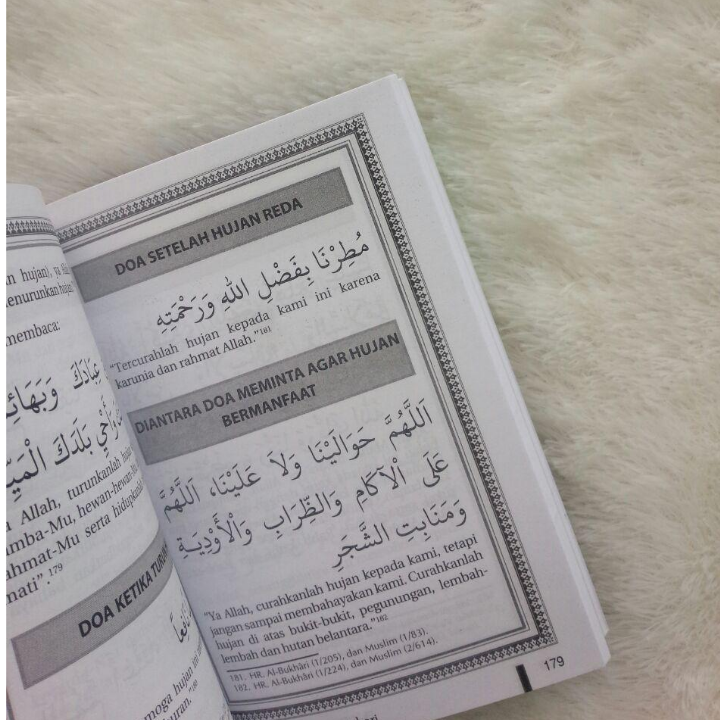 n hujan), ya
enurunkan hujan
membaca:
عِبَادَكَ وَبَهَائِ
وَأَحْيِ بَلَدَكَ الْمَيِّ
a Allah, turunkanlah
mba-Mu, hewan-hewan
ahmat-Mu serta hidupkan
mati”.179
DOA KETIKA TURUN
moga hujan ini
uran.”180
DOA SETELAH HUJAN REDA
مُطِرْنَا بِفَضْلِ اللهِ وَرَحْمَتِهِ
“Tercurahlah hujan kepada kami ini karena
karunia dan rahmat Allah.”181
DIANTARA DOA MEMINTA AGAR HUJAN
BERMANFAAT
اَللَّهُمَّ حَوَالَيْنَا وَلاَ عَلَيْنَا، اَللَّهُمَّ
عَلَى الْآكَامِ وَالظِّرَابِ وَالْأَوْدِيَةِ
وَمَنَابِتِ الشَّجَرِ
“Ya Allah, curahkanlah hujan kepada kami, tetapi
jangan sampai membahayakan kami. Curahkanlah
hujan di atas bukit-bukit, pegunungan, lembah-
lembah dan hutan belantara.”182
181. HR. Al-Bukhâri (1/205), dan Muslim (1/83).
182. HR. Al-Bukhâri (1/224), dan Muslim (2/614).
179